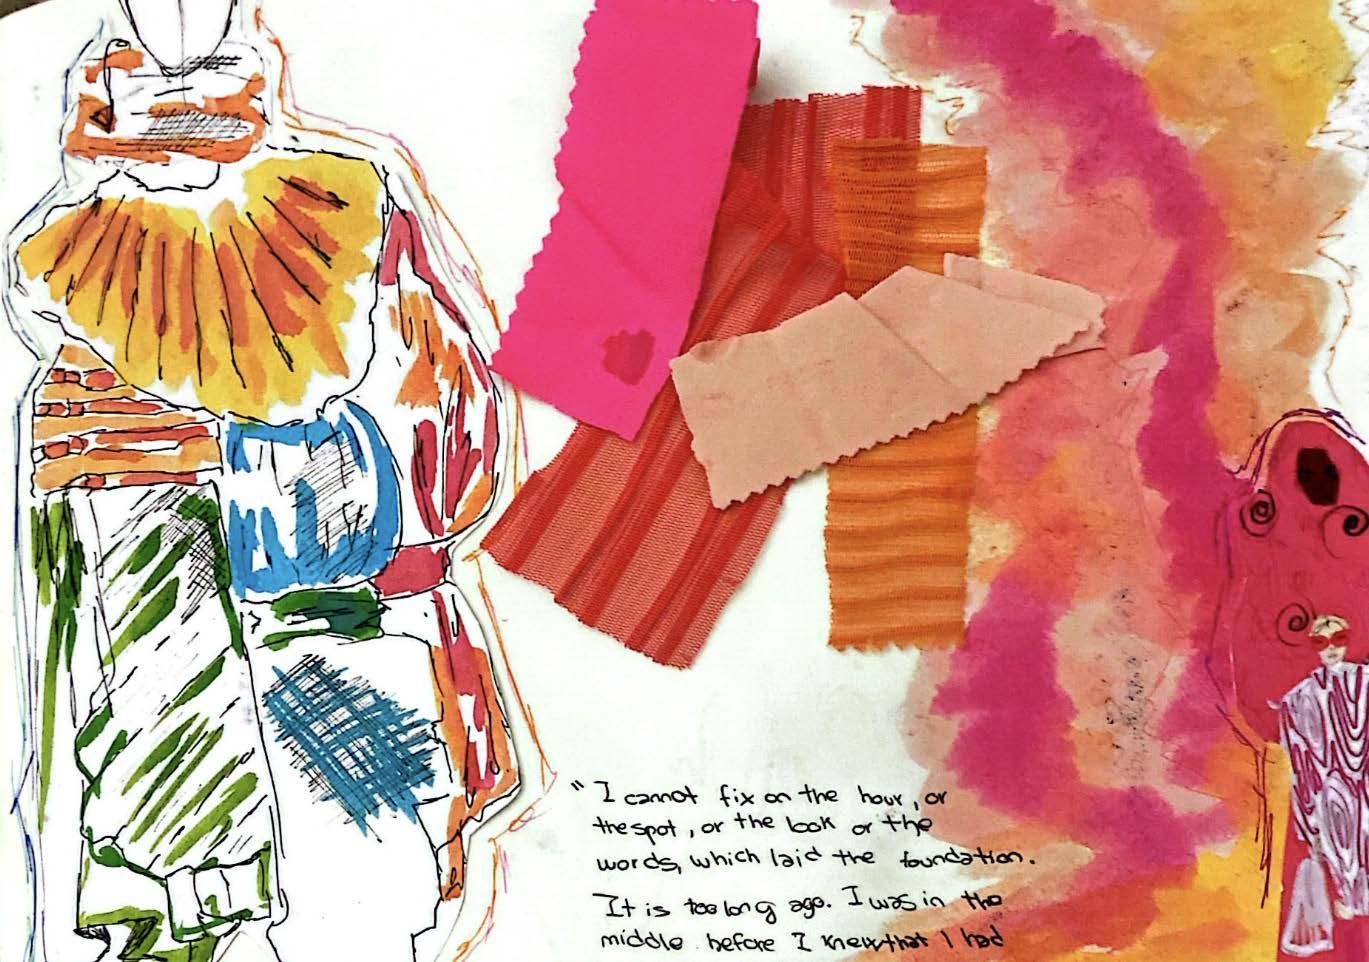 " I cannot fix on the hour, or
the spot, or the look or the
words, which laid the foundation.
It is too long ago. I was in the
middle before I knew that I had